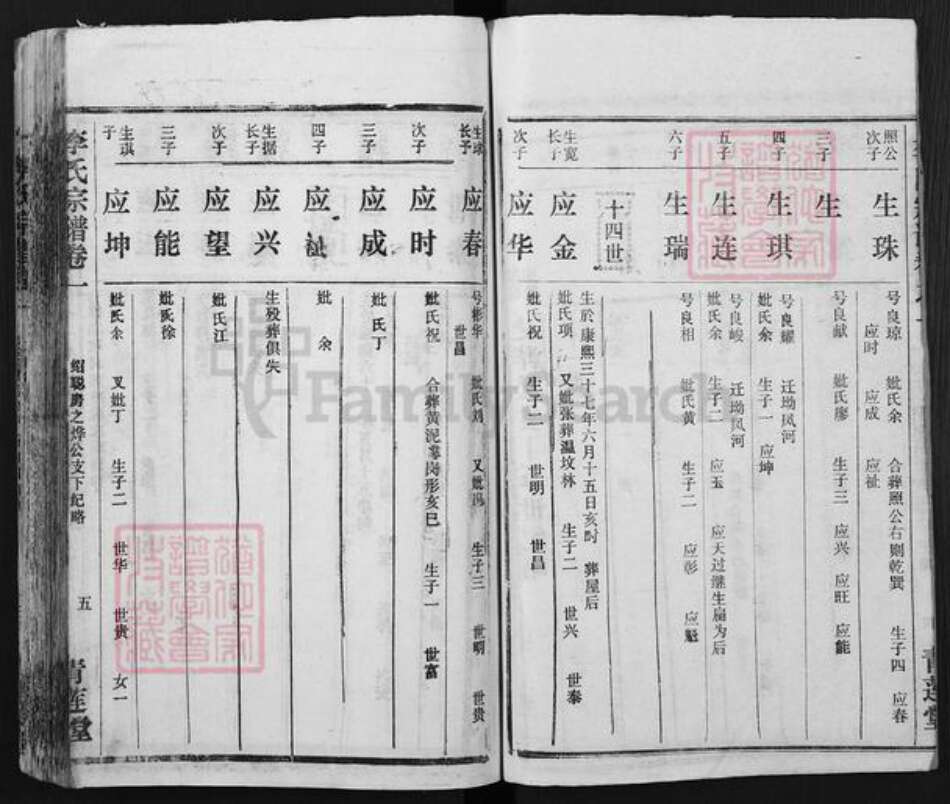 照公
次子
生珠
号良琼 妣氏余 合葬照公右则乾巽 生子四 应春
应时 应成 应祉
三子
生
号良献 妣氏廖 生子三 应兴 应旺 应能
四子
生琪
号良耀 迁坳凤河
妣氏余 生子一 应坤
五子
生连
号良峻 迁坳凤河
妣氏余 生子二 应玉 应天过继生扁为后
六子
生瑞
号良相 妣氏黄 生子二 应彰 应魁
十四世
生宽
长子
应金
生於康熙三十七年六月十五日亥时 葬屋后
妣氏项 又妣张葬温坟林 生子二 世兴 世泰
次子
应华
妣氏祝 生子二 世明 世昌
青莲堂
生球
长子
应春
号彬华 妣氏刘 又妣冯 生子三 世明 世贵
世昌
次子
应时
妣氏祝 合葬黄泥凹形亥巳 生子一 世富
三子
应成
妣氏丁
四子
应祉
妣 余
生据
长子
应兴
生殁葬俱失
次子
应望
妣氏江
三子
应能
妣氏徐
生琪
子
应坤
妣氏余 又妣丁 生子二 世华 世贵 女一
李氏宗谱卷一
绍聪腾之烨公支下纪略
五
青莲堂
FamilySearch